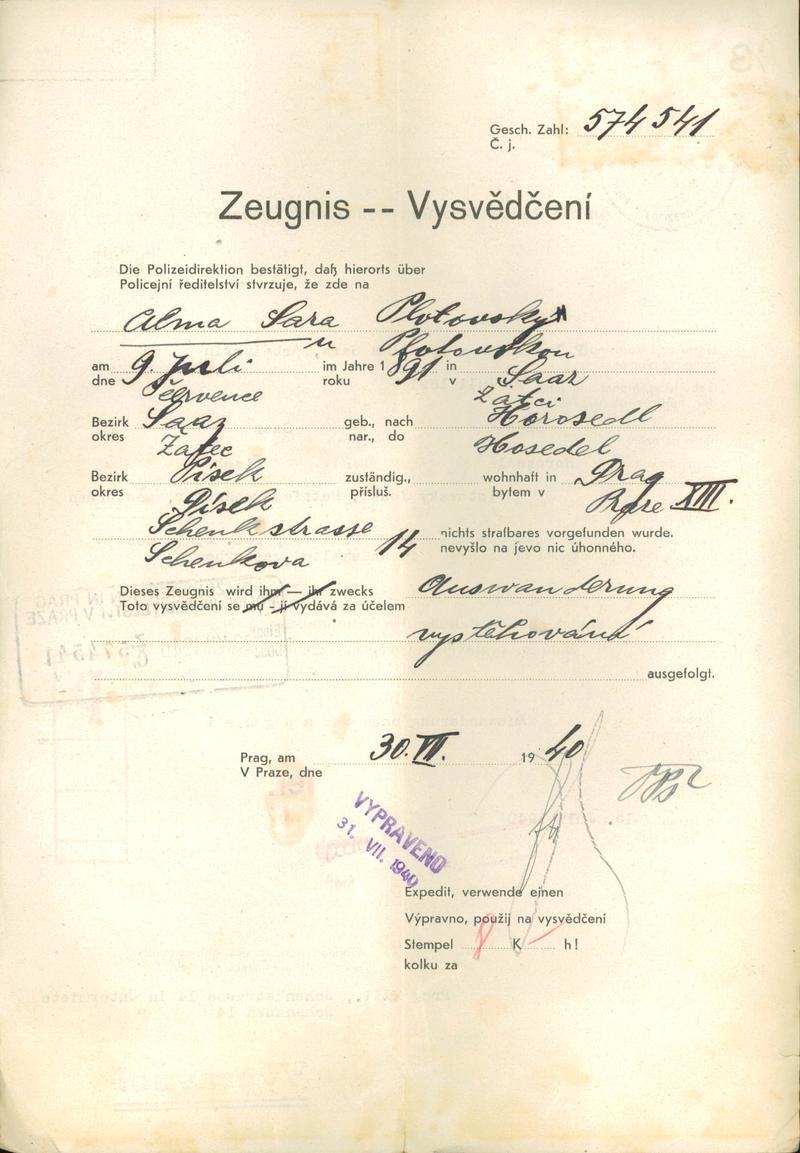 Gesch. Zahl: 574541
Č. j.
Zeugnis -- Vysvědčení
Die Polizeidirektion bestätigt, daß hierorts über
Policejní ředitelství stvrzuje, že zde na
Alma Sara Plotovsky
u Plotovskou
am 9. Juli im Jahre 1891 in Saaz
dne července roku v Žatci
Bezirk Saaz geb., nach Horosedl
okres Žatec nar., do Hosedel
Bezirk Pisek zuständig., wohnhaft in Prag
okres Písek přísluš. bytem v Praze XIII.
Schenkstrasse 14 nichts strafbares vorgefunden wurde.
Schenkova nevyšlo na jevo nic úhonného.
Dieses Zeugnis wird ihm — ihr zwecks Auswanderung
Toto vysvědčení se mu - jí vydává za účelem
vystěhování
ausgefolgt.
Prag, am 30. VII. 1940
V Praze, dne
VYPRAVENO
31. VII. 1940
Expedit, verwende einen
Výpravno, použij na vysvědčení
Stempel 8 K — h!
kolku za